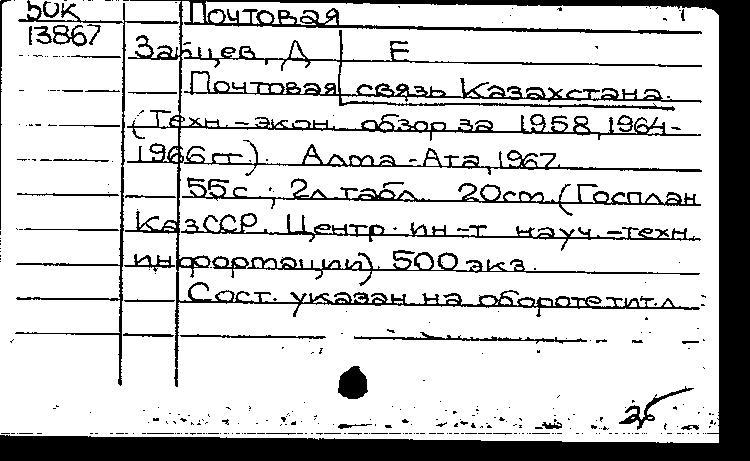 БОК Почтовая
13867 Зайцев, Д Е
Почтовая связь Казахстана.
(Техн.-экон. обзор за 1958, 1964-
1966 гг.). Алма-Ата, 1967.
55с; 2л. табл. 20cm. (Госплан
КазССР. Центр. ин-т науч.-техн.
информации). 500 экз.
Сост. указан на обороте тит. л.